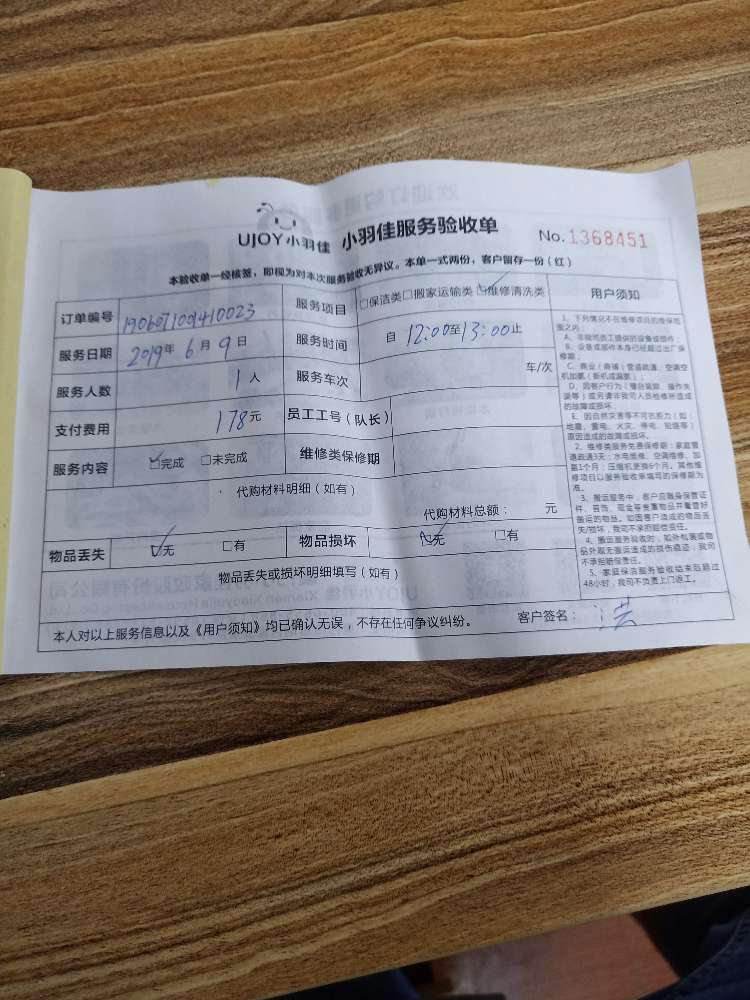 UJOY小羽佳 小羽佳服务验收单 No.1368451
本验收单一经核签，即视为对本次服务验收无异议。本单一式两份，客户留存一份（红）
订单编号 服务项目 □保洁类□搬家运输类☑维修清洗类 用户须知
服务日期 2019年 6 月 9 日 服务时间 自 12:00至13:00止
服务人数 1 人 服务车次 车/次
支付费用 178元 员工工号（队长）
服务内容 ☑完成 □未完成 维修类保修期
代购材料明细（如有）
代购材料总额： 元
物品丢失 ☑无 □有 物品损坏 ☑无 □有
物品丢失或损坏明细填写（如有）
本人对以上服务信息以及《用户须知》均已确认无误，不存在任何争议纠纷。 客户签名：
1、下列情况不在维修项目的维保范
围之内：
A、非我司员工提供的设备或部件；
B、设备或部件本身已经超过出厂保
修期；
C、商业（商铺）管道疏通、空调空
机加氟（新机或漏氟）；
D、因客户行为（擅自装卸、操作失
误等）或另请非我司人员检修所造成
的故障或损坏
E、因自然灾害等不可抗力（如：
地震、雷电、火灾、停电、短路等）
原因造成的故障或损坏。
2、维修类服务免费保修期：家庭管
道疏通3天；水电维修、空调维修、加
氟1个月；压缩机更换6个月。其他维
修项目以服务验收单填写的保修期为
准。
3、搬运服务中，客户应随身保管证
件、首饰、现金等贵重物品并看管好
搬运的物品。如因客户造成的物品丢
失/损坏，我司不承担赔偿责任。
4、搬运服务验收时，如外包装或物
品外观无搬运造成的损伤痕迹，我司
不承担赔保责任。
5、家庭保洁服务验收结束后超过
48小时，我司不负责上门返工。